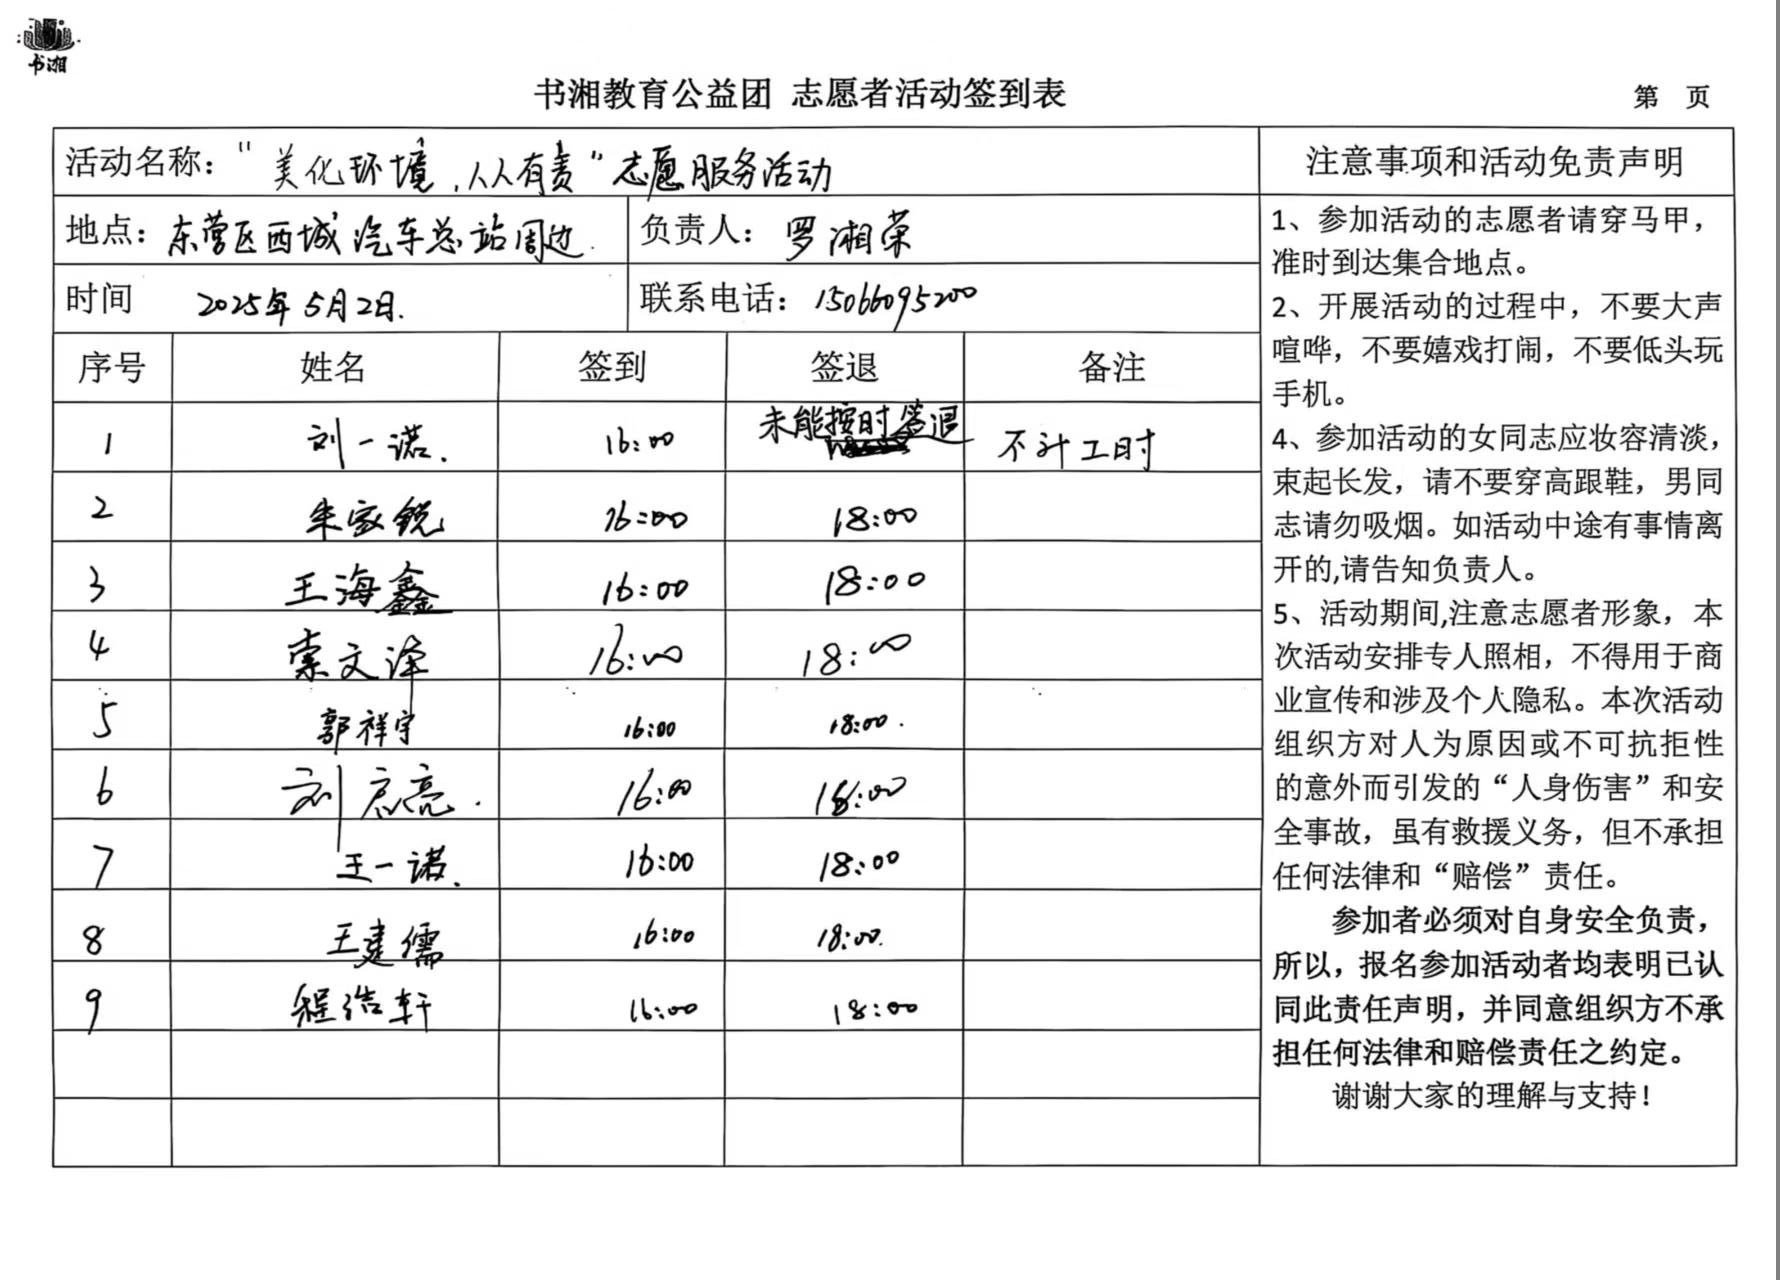 书湘
书湘教育公益团 志愿者活动签到表
第 页
活动名称："美化环境，人人有责"志愿服务活动
注意事项和活动免责声明
地点：东营区西城汽车总站周边.
负责人：罗湘荣
时间 2025年5月2日.
联系电话：15066095200
序号 姓名 签到 签退 备注
1 刘一诺. 16:00 未能按时签退 不计工时
2 朱家锐 16:00 18:00
3 王海鑫 16:00 18:00
4 索文泽 16:00 18:00
5 郭祥宇 16:00 18:00.
6 刘志亮. 16:00 18:00
7 王一诺. 16:00 18:00
8 王建儒 16:00 18:00.
9 程浩轩 16:00 18:00
1、参加活动的志愿者请穿马甲，
准时到达集合地点。
2、开展活动的过程中，不要大声
喧哗，不要嬉戏打闹，不要低头玩
手机。
4、参加活动的女同志应妆容清淡，
束起长发，请不要穿高跟鞋，男同
志请勿吸烟。如活动中途有事情离
开的,请告知负责人。
5、活动期间,注意志愿者形象，本
次活动安排专人照相，不得用于商
业宣传和涉及个人隐私。本次活动
组织方对人为原因或不可抗拒性
的意外而引发的“人身伤害”和安
全事故，虽有救援义务，但不承担
任何法律和“赔偿”责任。
参加者必须对自身安全负责，
所以，报名参加活动者均表明已认
同此责任声明，并同意组织方不承
担任何法律和赔偿责任之约定。
谢谢大家的理解与支持！